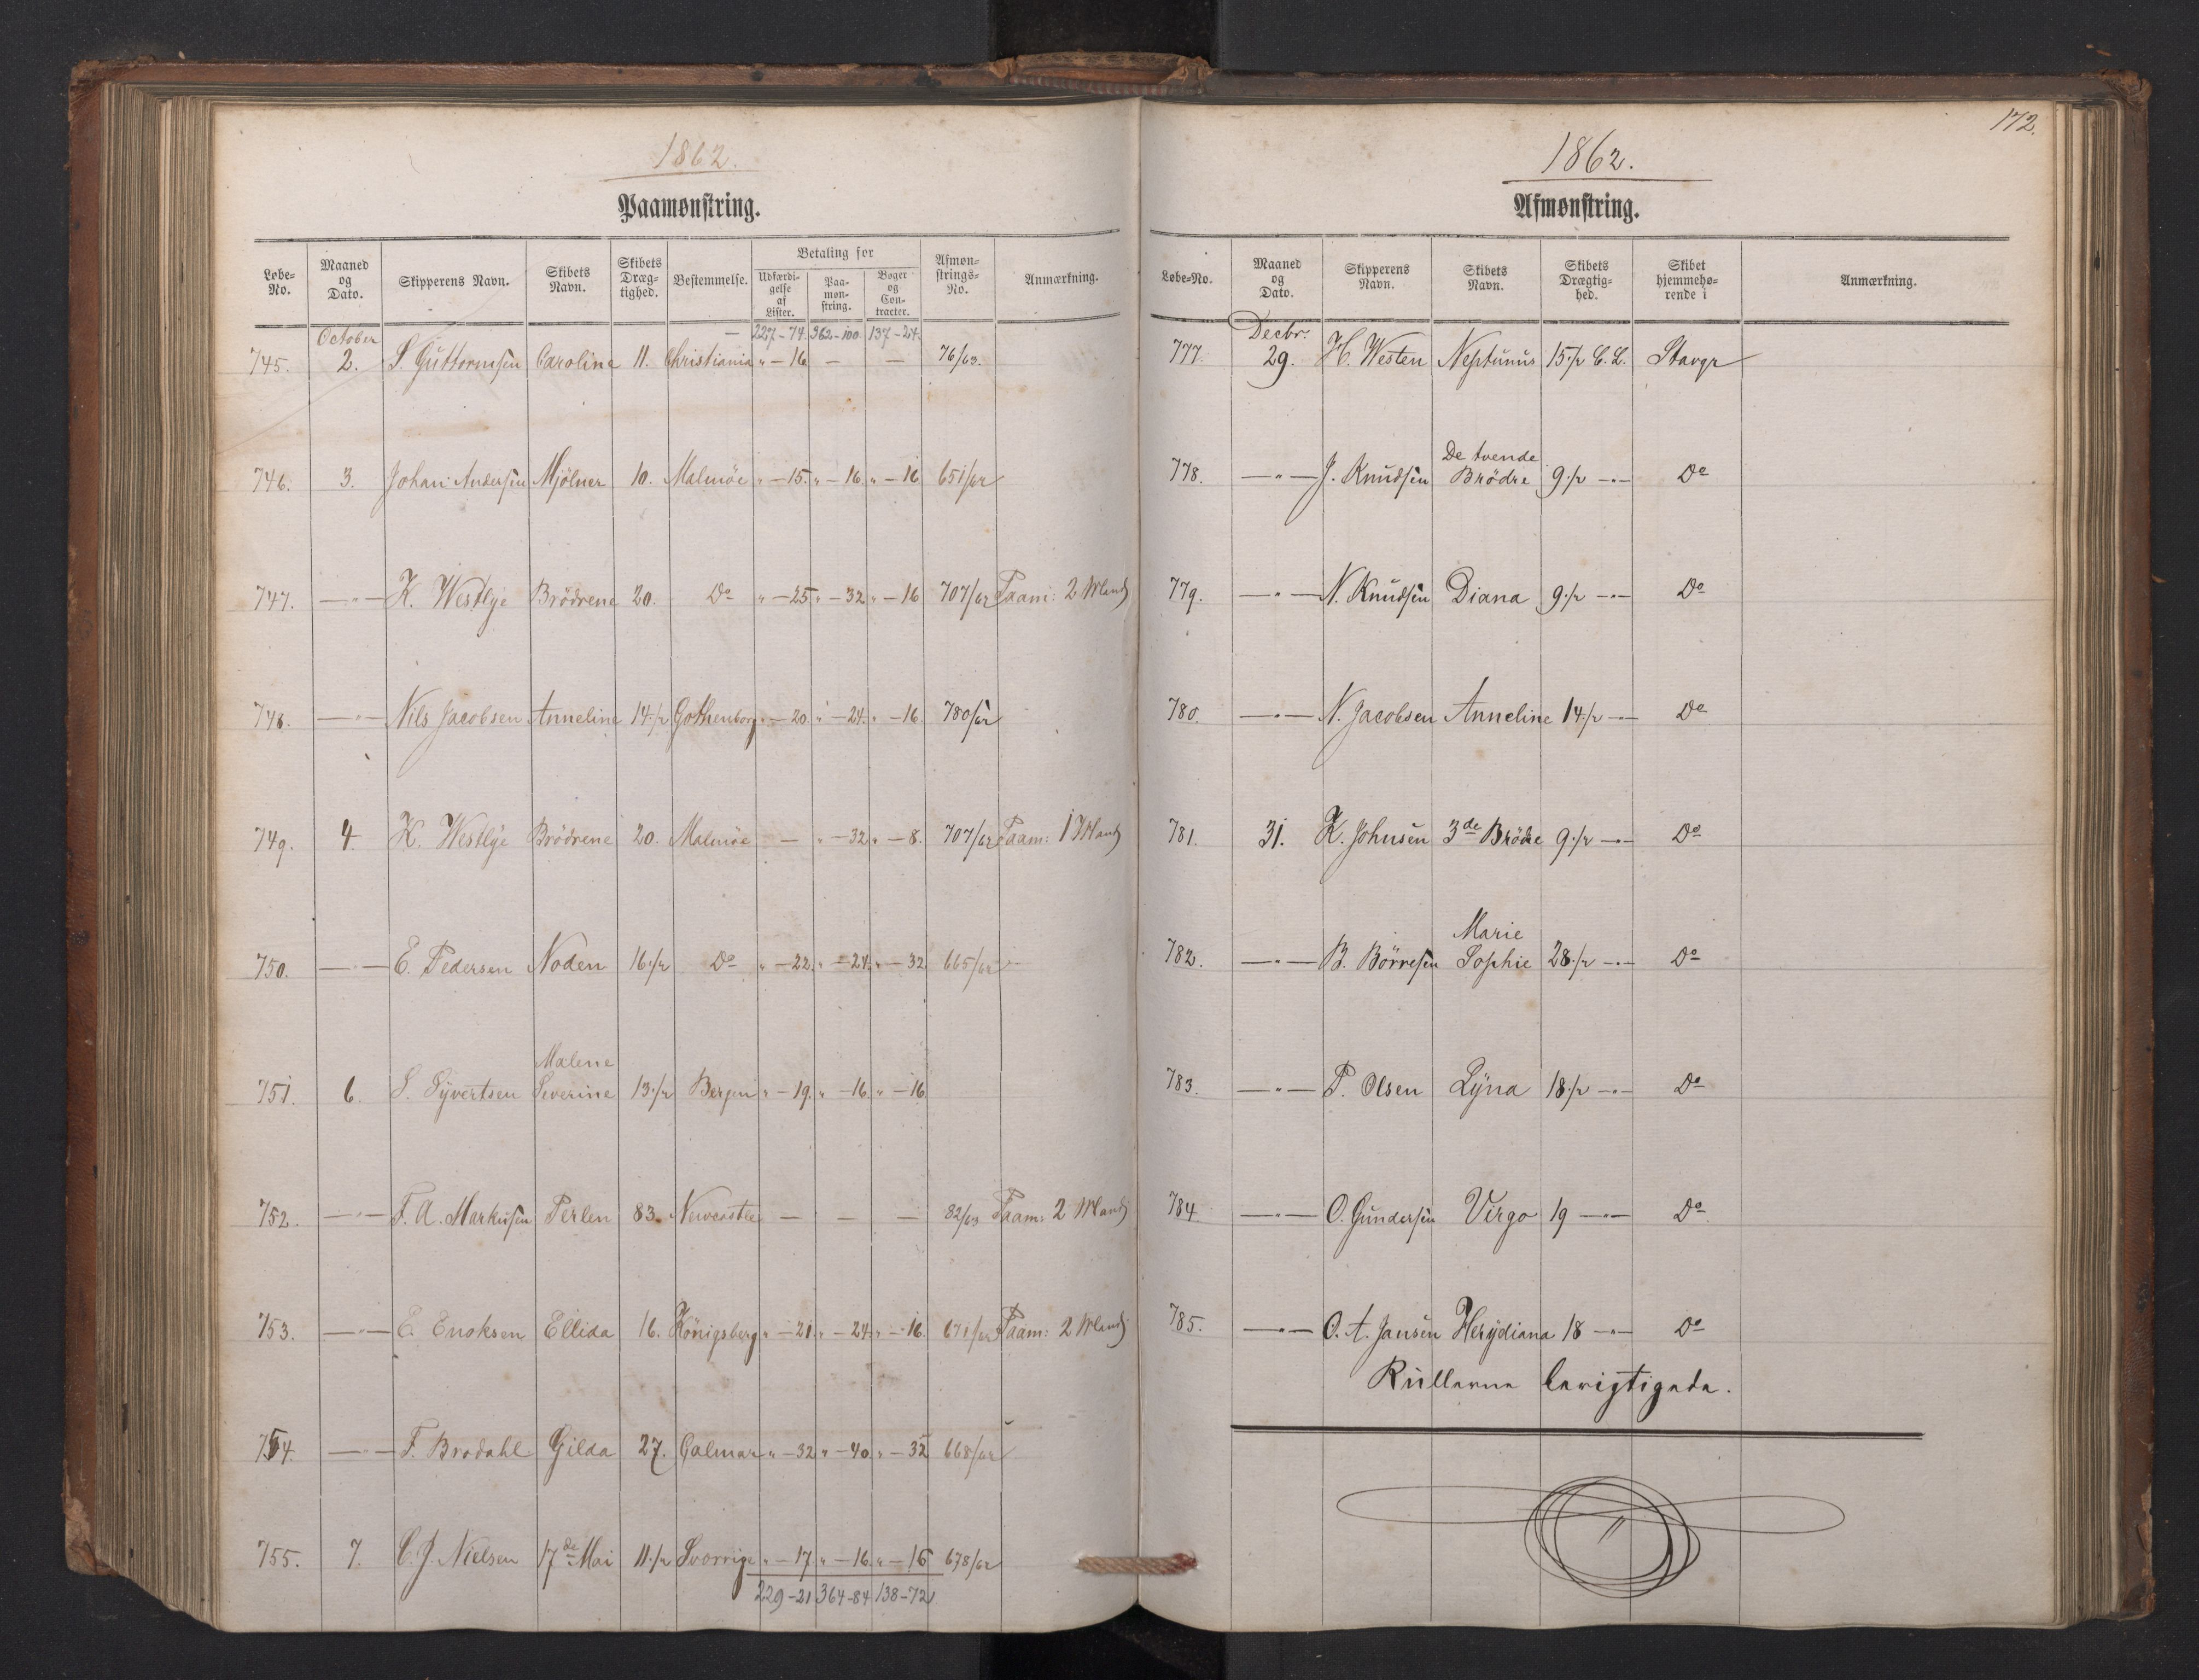 1862.
Paamønstring.
Løbe-No. Maaned og Dato. Skipperens Navn. Skibets Navn. Skibets Dræg-tighed. Bestemmelse. Betaling for Udfærdi-gelse af Lister. Paa-møn-string. Bøger og Con-tracter. Afmøn-strings-No. Anmærkning.
October — 227-74. 362-100 137-24.
745. 2. S. Guttormsen Caroline 11. Christiania „ — 16 — — 76/63.
746. 3. Johan Andersen Mjölner 10. Malmöe „ — 15. „ — 16. „ — 16 651/62
747. —„— K. Westlye Brödrene 20. Do „ — 25 „ — 32 „ — 16 707/62 Paam: 2 Mand
748. —„— Nils Jacobsen Anneline 14 1/2 Gothenborg „ — 20. „ — 24. „ — 16. 780/62
749. 4. K. Westlye Brödrene 20. Malmöe — „ — 32 „ — 8. 707/62 Paam: 1 Mand
750. —„— E. Pedersen Noden 16 1/2 Do „ — 22 „ — 24. „ — 32 665/62
Malene
751. 6. S. Syvertsen Severine 13 1/2 Bergen „ — 19. „ — 16 „ — 16
752. —„— F. A. Markusen Perlen 83. Newcastle — — — 82/63 Paam: 2 Mand
753. —„— E. Enoksen Ellida 16. Königsberg „ — 21. „ — 24. „ — 16. 671/62 Paam: 2 Mand
754. —„— F. Brodahl Gilda 27. Calmar „ — 32 „ — 40. „ — 32 668/62
755. 7. C. J. Nielsen 17de Mai 11 1/2 Sverrige „ — 17. „ — 16. „ — 16 678/62
229-21 364-84 138-72
172.
1862.
Afmønstring.
Løbe-No. Maaned og Dato. Skipperens Navn. Skibets Navn. Skibets Drægtig-hed. Skibet hjemmehø-rende i Anmærkning.
Decbr.
777. 29. H. Westen Neptunus 15 1/2 C. L. Stavgr
De tvende
778. —„— J. Knudsen Brödre 9 1/2 —„— Do
779. —„— N. Knudsen Diana 9 1/2 —„— Do
780. —„— N. Jacobsen Anneline 14 1/2 —„— Do
781. 31. K. Johnsen 3de Brödre 9 1/2 —„— Do
Marie
782. —„— B. Börresen Sophie 28 1/2 —„— Do
783. —„— P. Olsen Lyna 18 1/2 —„— Do
784. —„— O. Gundersen Virgo 19 —„— Do
785. —„— O. A. Jansen Herydiana 18 —„— Do
Rullerne berigtigede.